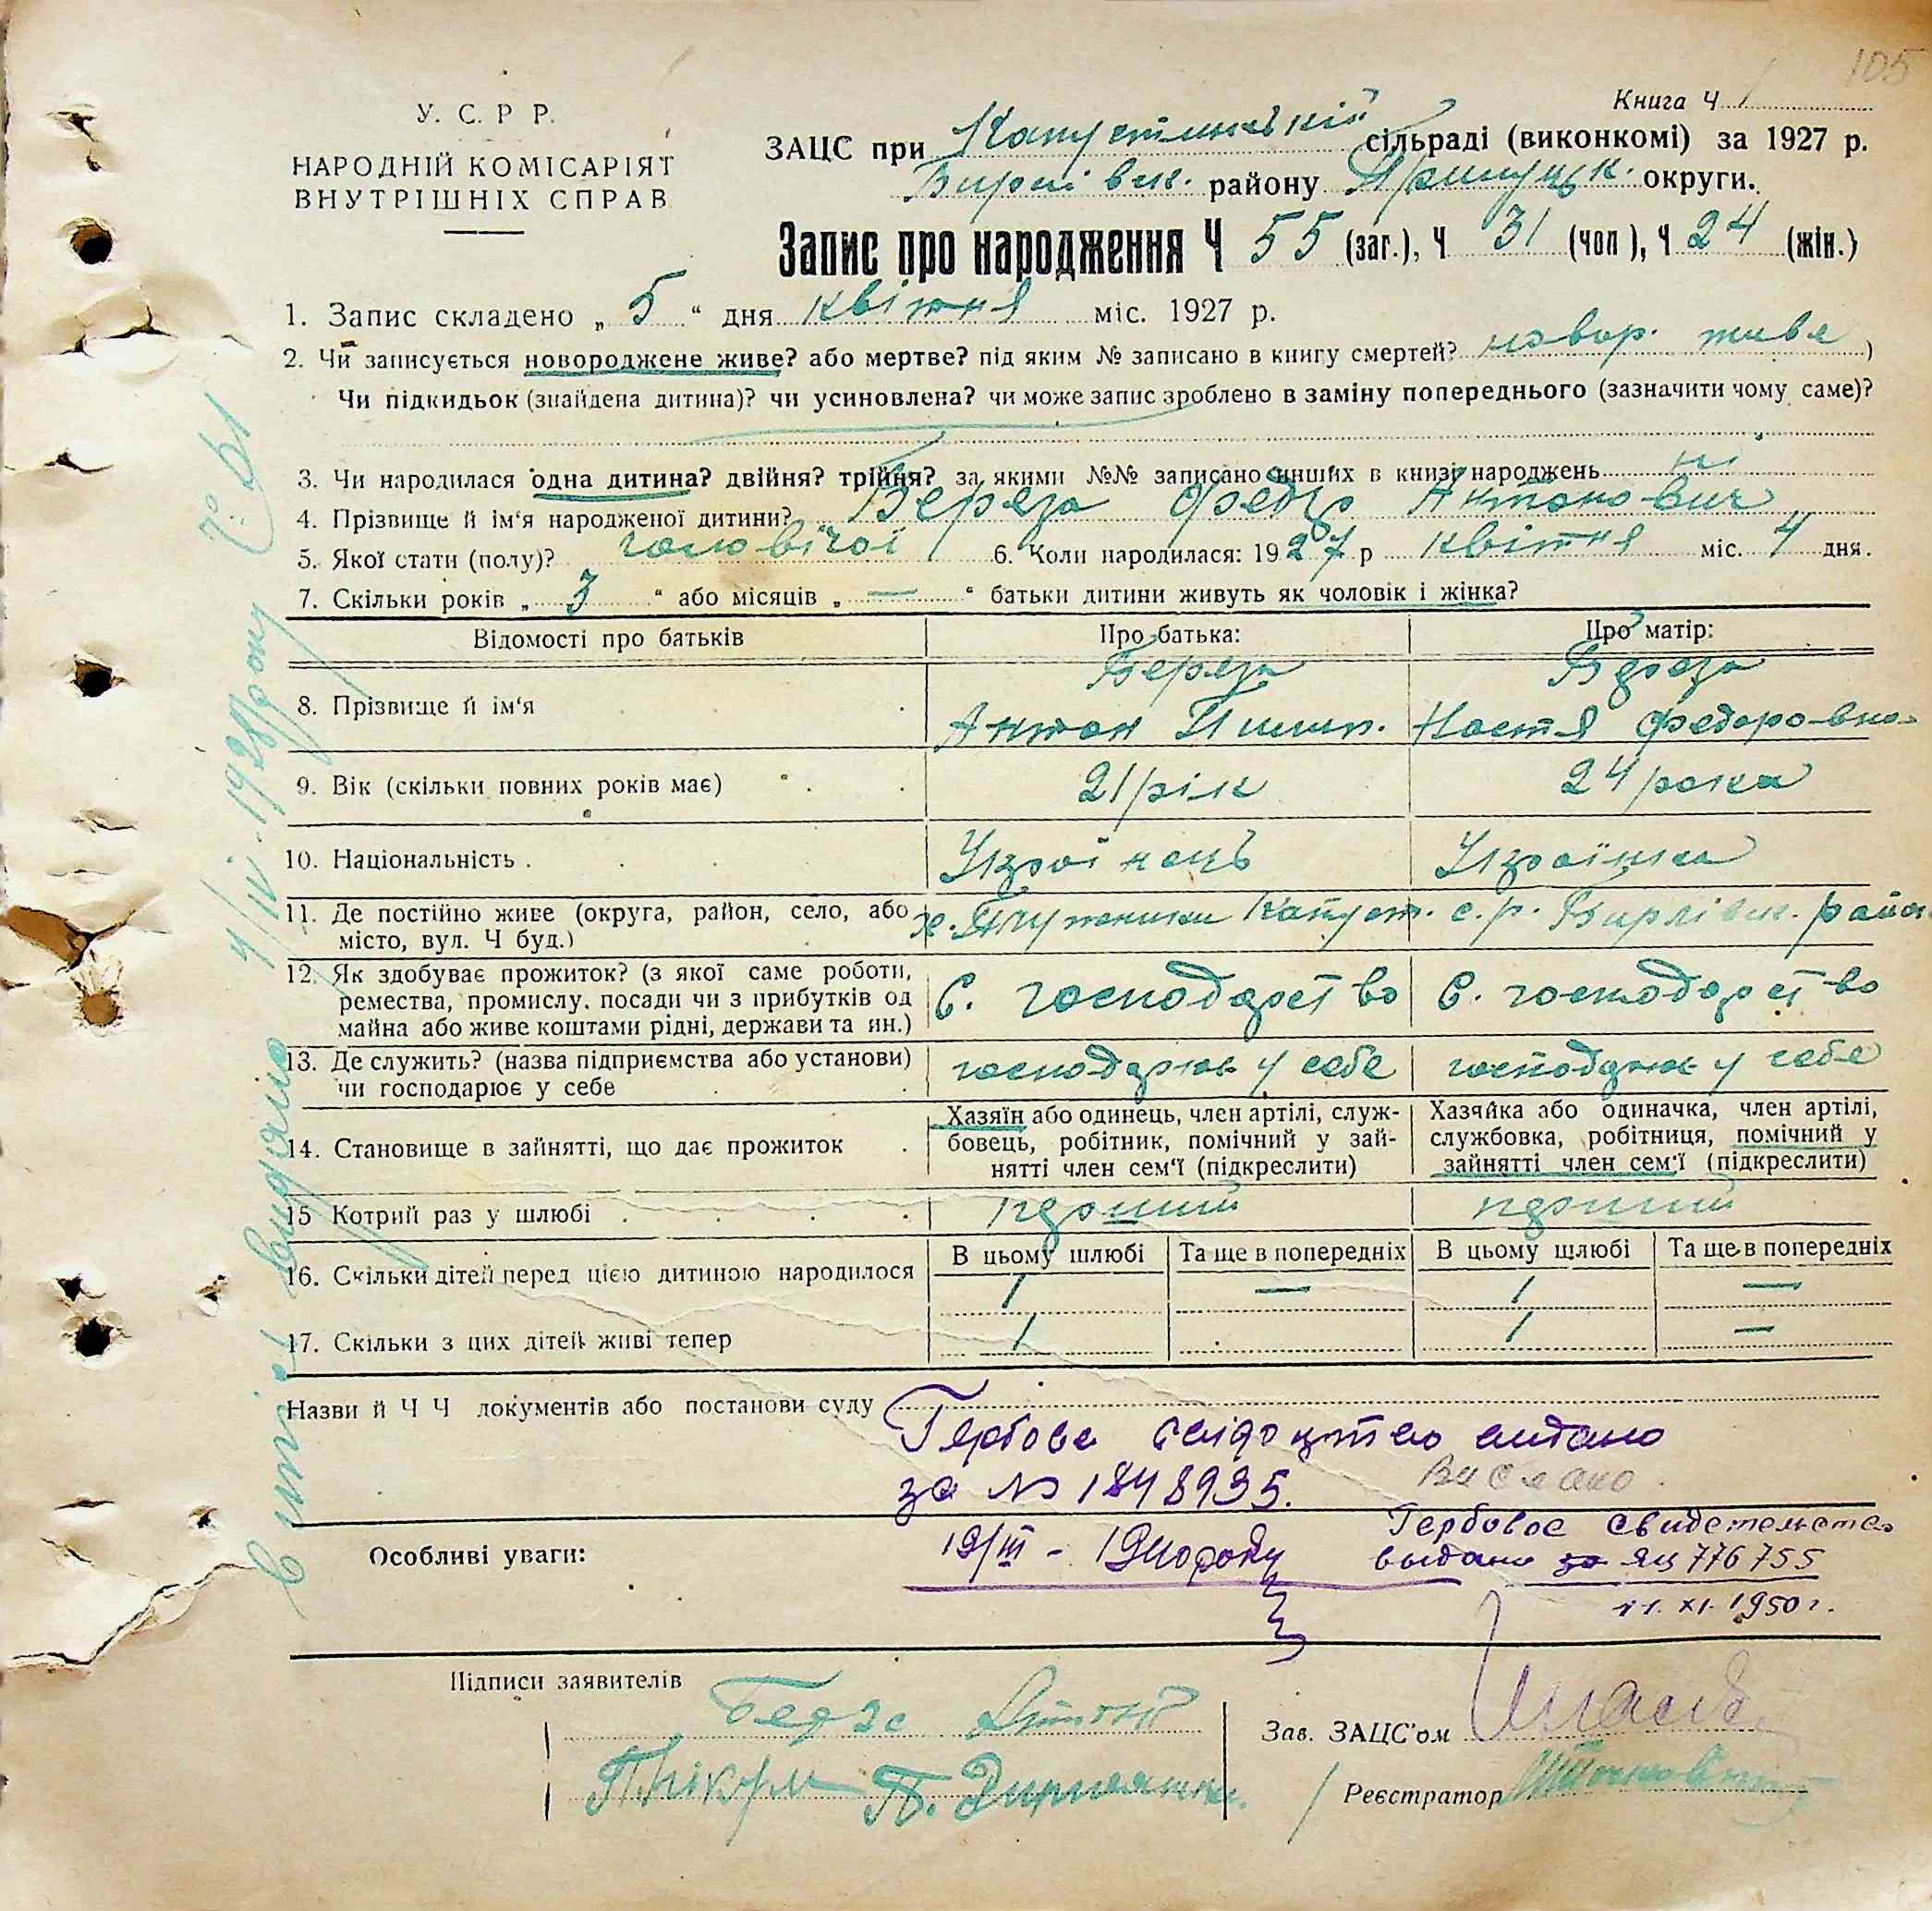 105
Книга Ч 1
У. С. Р Р.
НАРОДНІЙ КОМІСАРІЯТ
ВНУТРІШНІХ СПРАВ
ЗАЦС при Капустинській сільраді (виконкомі) за 1927 р.
району Прилуцьк. округи.
Запис про народження Ч 55 (заг.), Ч 31 (чол), Ч 24 (жін.)
1. Запис складено „ 5 “ дня квітня міс. 1927 р.
2. Чи записується новороджене живе? або мертве? під яким № записано в книгу смертей? новор. живе )
Чи підкидьок (знайдена дитина)? чи усиновлена? чи може запис зроблено в заміну попереднього (зазначити чому саме)?
3. Чи народилася одна дитина? двійня? трійня? за якими №№ записано инших в книзі народжень ні
4. Прізвище й ім'я народженої дитини? Береза Федір Антонович
5. Якої стати (полу)? чоловічої 6. Коли народилася: 1927 р квітня міс. 4 дня.
7. Скільки років „ 3 “ або місяців „ — “ батьки дитини живуть як чоловік і жінка?
Відомості про батьків Про батька: Про матір:
8. Прізвище й ім'я Береза Береза
Антон Настя Федоровна
9. Вік (скільки повних років має) 21 рік 24 роки
10. Національність Українець Українка
11. Де постійно живе (округа, район, село, або місто, вул. Ч буд.) х. Капуст. с.р. район
12. Як здобуває прожиток? (з якої саме роботи, ремества, промислу. посади чи з прибутків од майна або живе коштами рідні, держави та ин.) С. господарство С. господарство
13. Де служить? (назва підприємства або установи) чи господарює у себе господарює у себе господарює у себе
14. Становище в зайнятті, що дає прожиток
Хазяїн або одинець, член артілі, служ-
бовець, робітник, помічний у зай-
нятті член сем'ї (підкреслити)
Хазяйка або одиначка, член артілі,
службовка, робітниця, помічний у
зайнятті член сем'ї (підкреслити)
15 Котрий раз у шлюбі перший перший
В цьому шлюбі Та ще в попередніх В цьому шлюбі Та ще в попередніх
16. Скільки дітей перед цією дитиною народилося 1 — 1 —
17. Скільки з цих дітей живі тепер 1 1 —
Назви й Ч Ч документів або постанови суду
Гербове свідоцтво видано
за № 1848935.
Вислано
Особливі уваги:
19/III - 19
Гербовое свидетельство
выдано за ЯЦ 776755
11. XI. 1950 г.
Підписи заявителів
Береза Антон
Зав. ЗАЦС'ом
Реєстратор
видано 4/IV. 1928 року